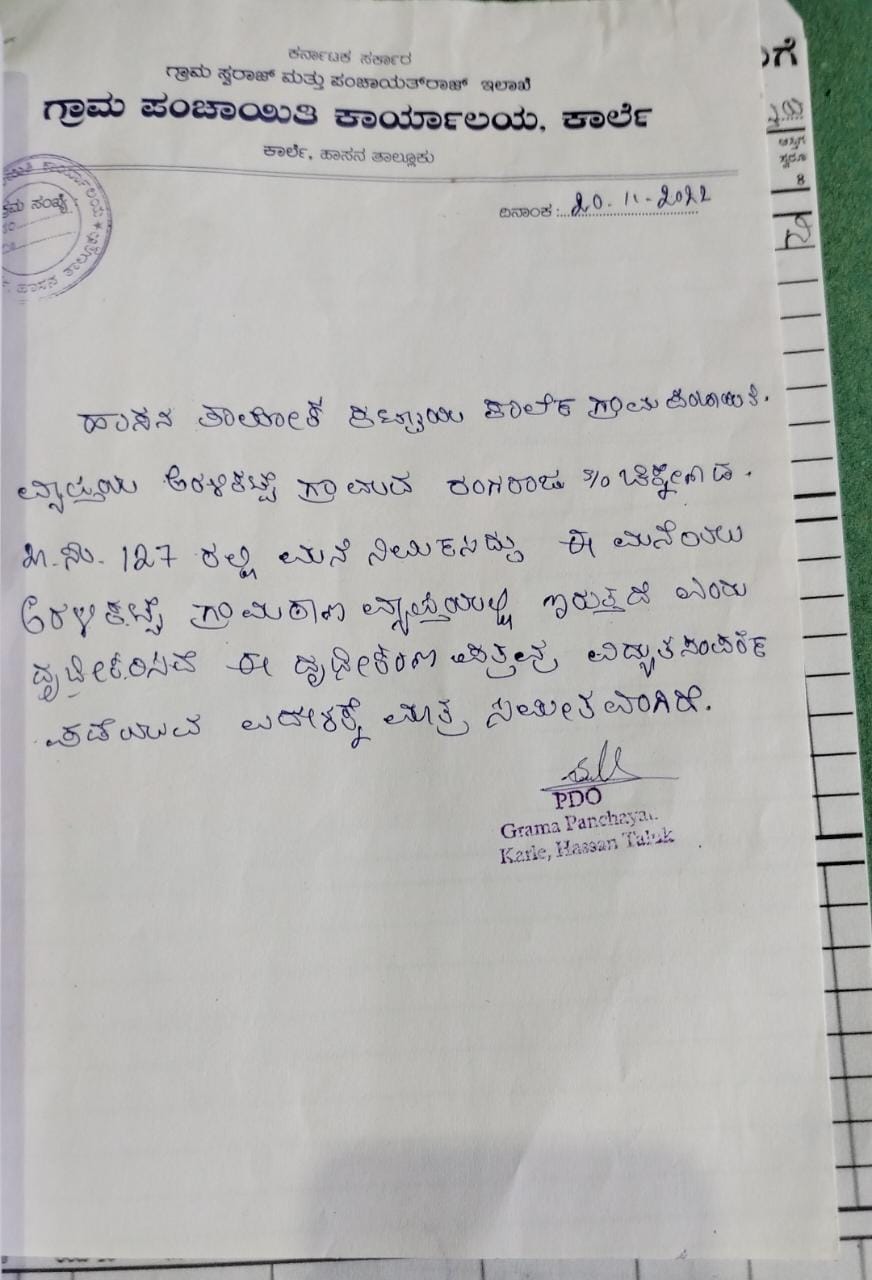 ಕರ್ನಾಟಕ ಸರ್ಕಾರ
ಗ್ರಾಮ ಸ್ವರಾಜ್ ಮತ್ತು ಪಂಚಾಯತ್‌ರಾಜ್ ಇಲಾಖೆ
ಗ್ರಾಮ ಪಂಚಾಯಿತಿ ಕಾರ್ಯಾಲಯ, ಕಾರ್ಲೆ
ಕಾರ್ಲೆ, ಹಾಸನ ತಾಲ್ಲೂಕು
ದಿನಾಂಕ: 20.11.2022
ಹಾಸನ ತಾಲೋಕ ಕಟ್ಟಾಯ ಕಾರ್ಲೆ ಗ್ರಾಮ ಪಂಚಾಯಿತಿ.
ವ್ಯಾಪ್ತಿಯ ಅರಳಿಕಟ್ಟೆ ಗ್ರಾಮದ ರಂಗರಾಜು S/o
127 ರಲ್ಲಿ ಮನೆ ಈ ಮನೆಯು
ಅರಳಿಕಟ್ಟೆ ಗ್ರಾಮಠಾಣ ವ್ಯಾಪ್ತಿಯಲ್ಲಿ ಇರುತ್ತದೆ ಎಂದು
ದೃಢೀಕರಿಸಿದೆ ಈ ದೃಢೀಕರಣ ಪತ್ರವು ವಿದ್ಯುತ ಸಂಪರ್ಕ
ಪಡೆಯುವ ಮಾತ್ರ ಸೀಮಿತವಾಗಿದೆ.
PDO
Grama Panchayat
Karle, Hassan Taluk